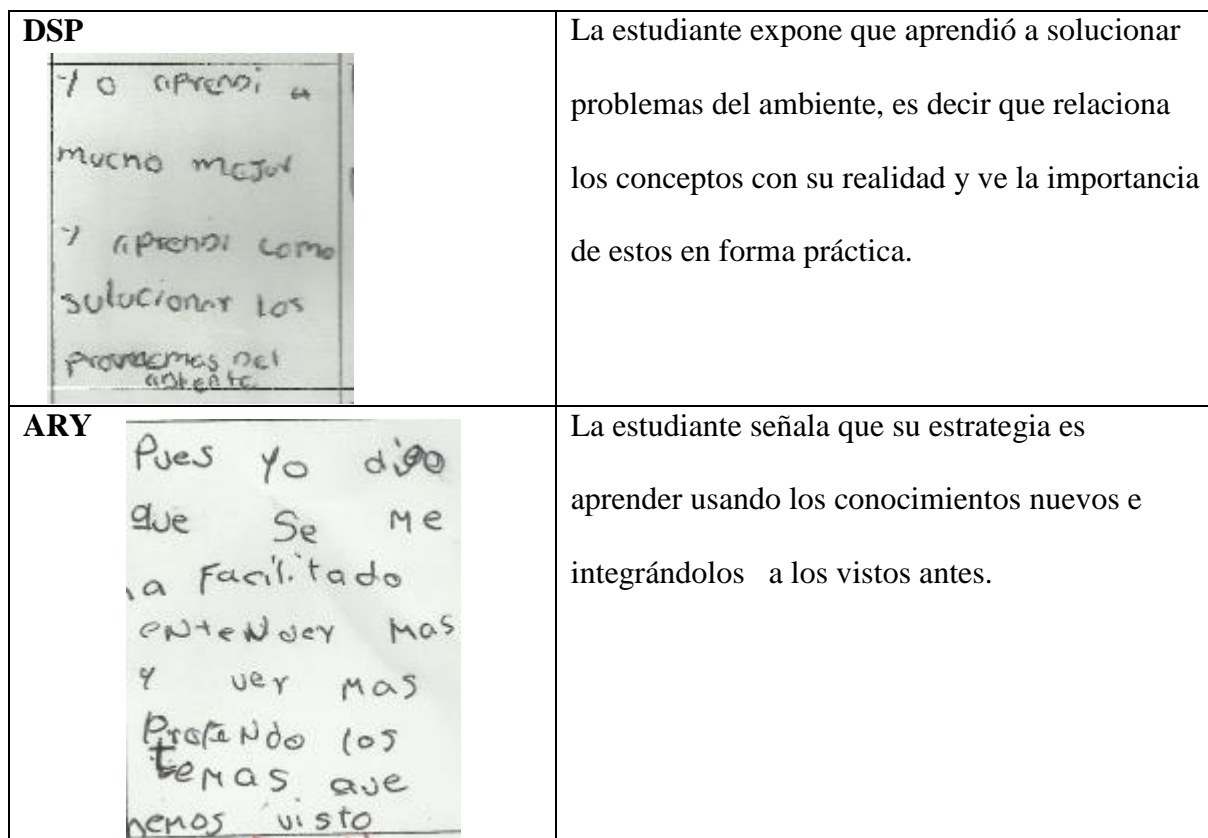 DSP
Yo aprendi a
mucho mejor
y aprendi como
sulucionar los
provlemas del
anbiente
La estudiante expone que aprendió a solucionar
problemas del ambiente, es decir que relaciona
los conceptos con su realidad y ve la importancia
de estos en forma práctica.
ARY
Pues yo digo
que se me
a Facilitado
entender mas
y ver mas
Profundo los
temas que
hemos visto
La estudiante señala que su estrategia es
aprender usando los conocimientos nuevos e
integrándolos a los vistos antes.